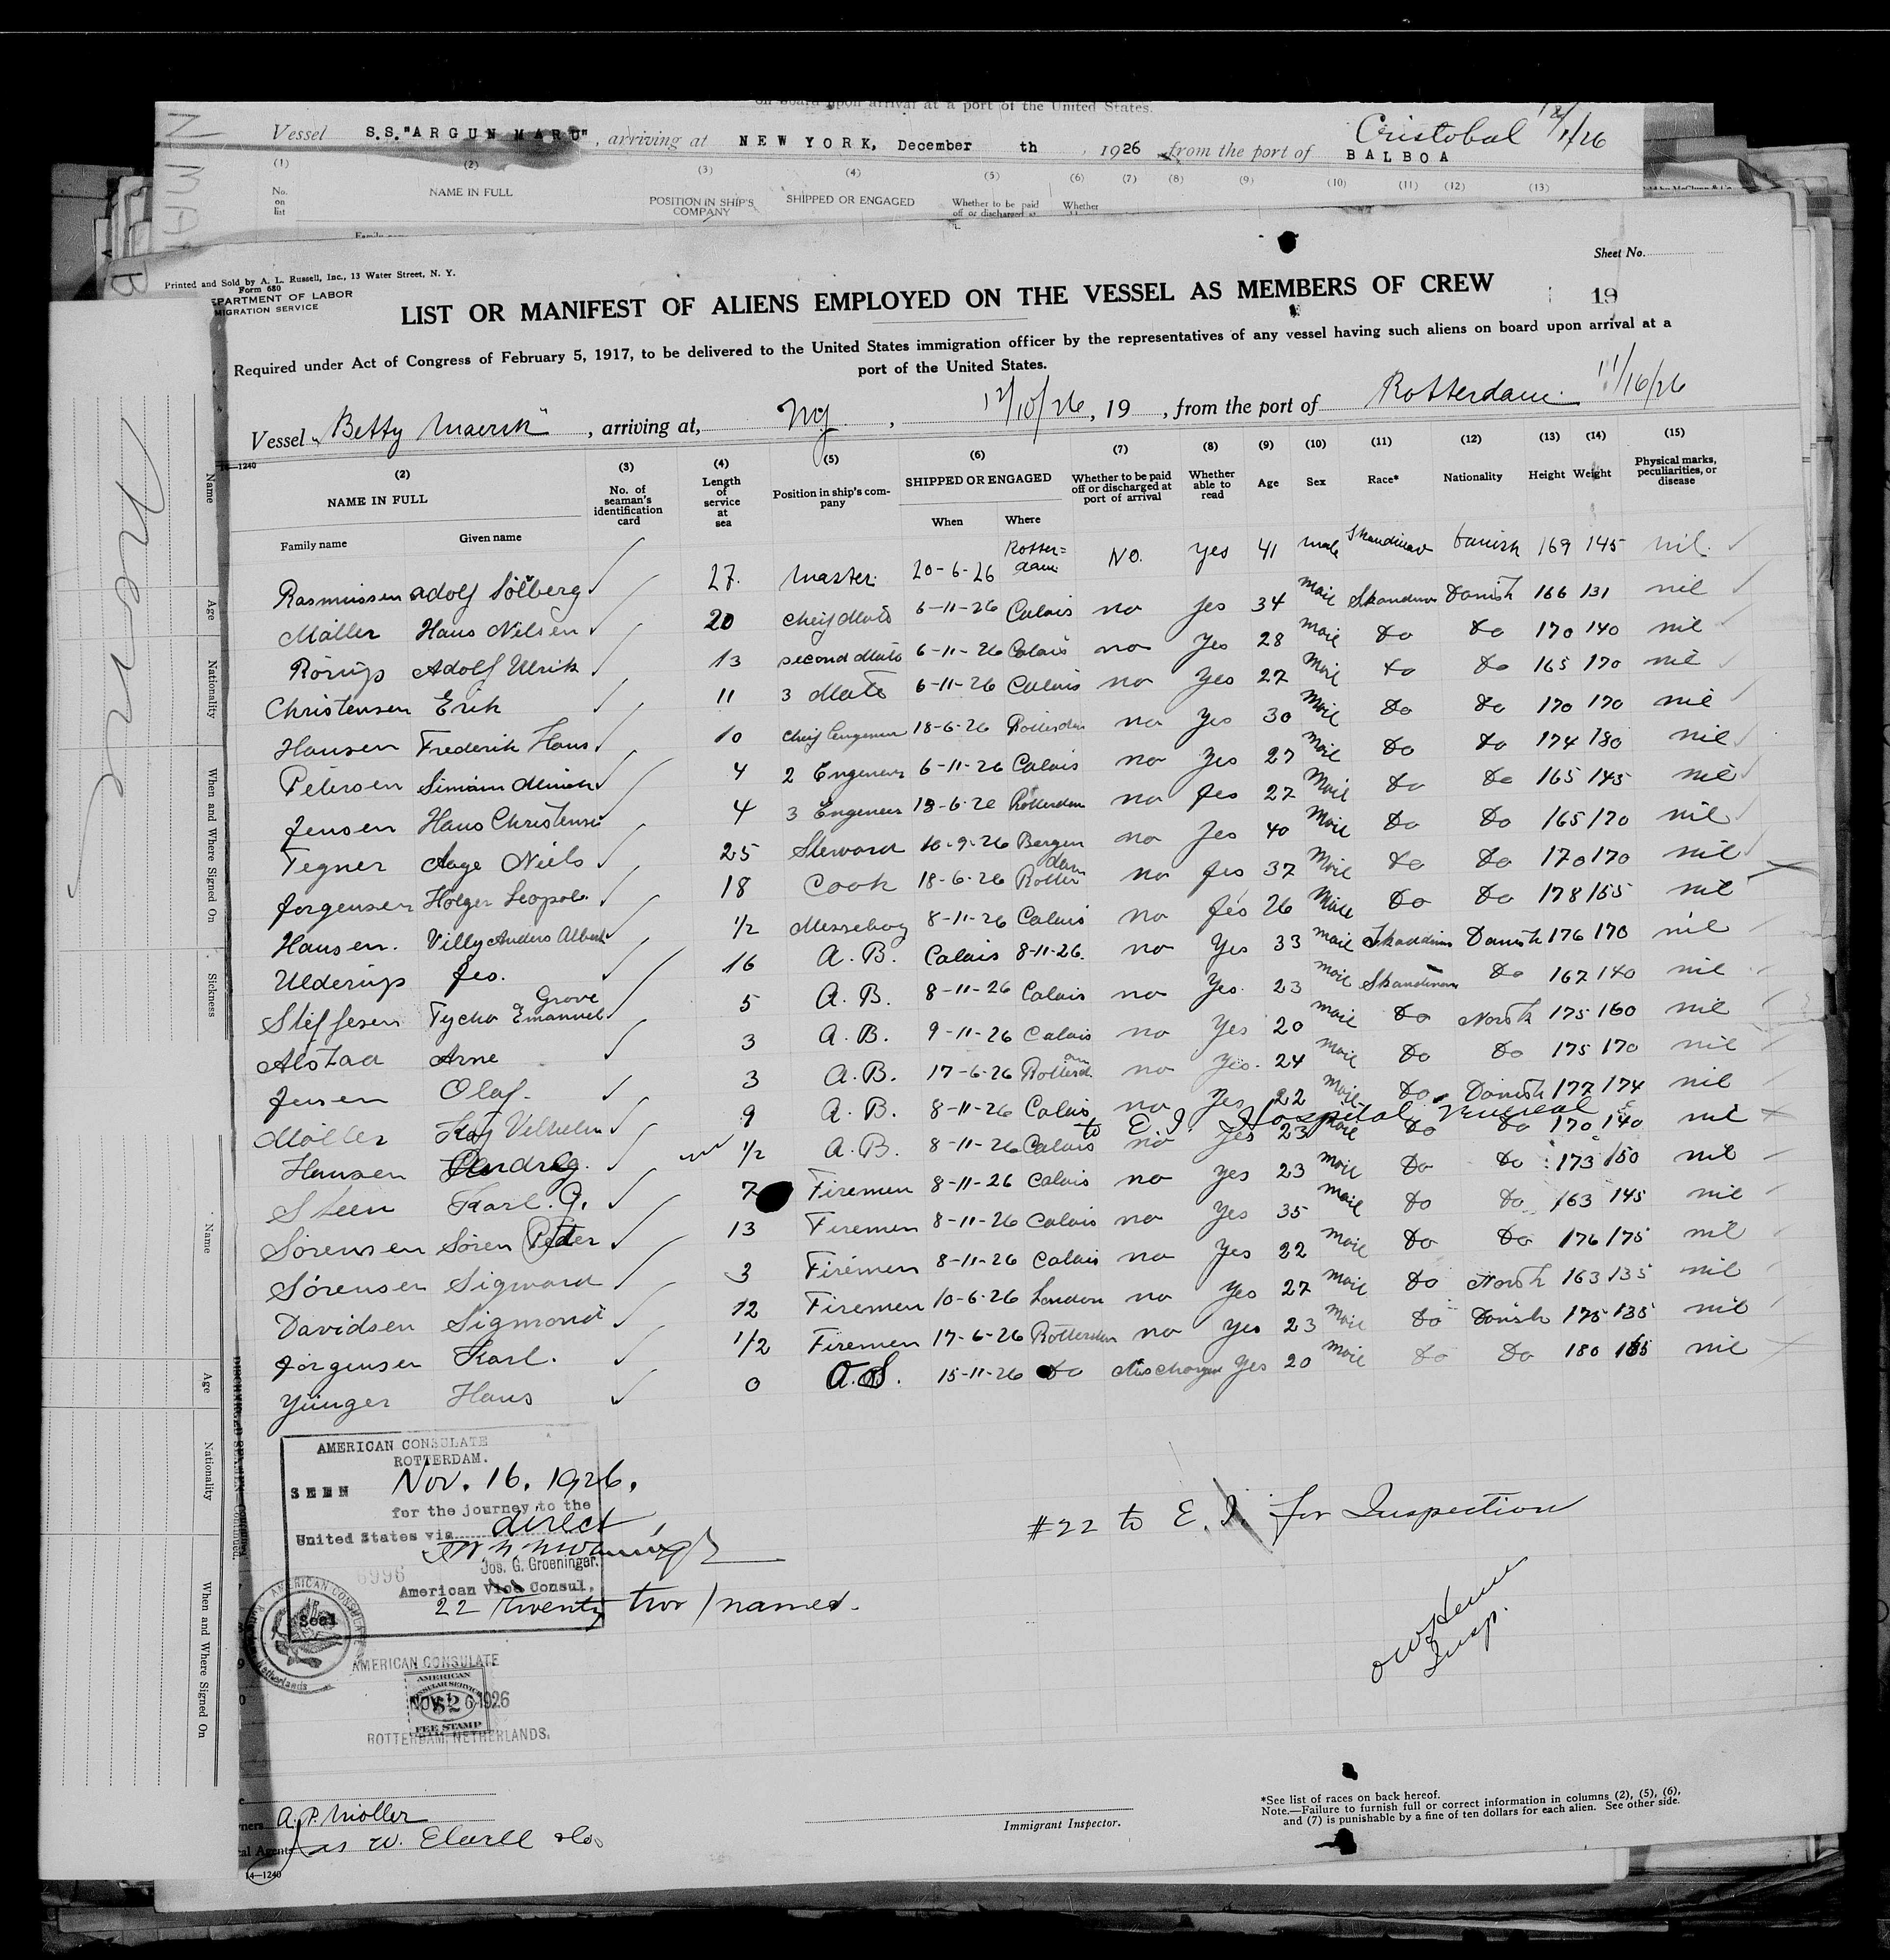 on board upon arrival at a port of the United States.
Vessel S.S."ARGUN MARU", arriving at NEW YORK, December th , 1926 from the port of BALBOA Cristobal 12/1/26
(1) (2) (3) (4) (5) (6) (7) (8) (9) (10) (11) (12) (13)
No. on list NAME IN FULL POSITION IN SHIP'S COMPANY SHIPPED OR ENGAGED Whether to be paid off or discharged at Whether
Sheet No.
Printed and Sold by A. L. Russell, Inc., 13 Water Street, N. Y.
Form 680
EPARTMENT OF LABOR
MIGRATION SERVICE
LIST OR MANIFEST OF ALIENS EMPLOYED ON THE VESSEL AS MEMBERS OF CREW
19
Required under Act of Congress of February 5, 1917, to be delivered to the United States immigration officer by the representatives of any vessel having such aliens on board upon arrival at a
port of the United States.
Vessel "Betty Maersk", arriving at, Ny , 12/10/26, 19 , from the port of Rotterdam 11/16/26
(2) (3) (4) (5) (6) (7) (8) (9) (10) (11) (12) (13) (14) (15)
NAME IN FULL No. of seaman's identification card Length of service at sea Position in ship's company SHIPPED OR ENGAGED Whether to be paid off or discharged at port of arrival Whether able to read Age Sex Race* Nationality Height Weight Physical marks, peculiarities, or disease
Family name Given name When Where
Rasmussen Adolf Sölberg 27. Master. 20-6-26 Rotter=dam No. yes 41 male Skandinav Danish 169 145 nil.
Möller Hans Nilsen 20 Cheif Mate 6-11-26 Calais no yes 34 Male Skandinav Danish 166 131 nil
Rörup Adolf Ulrik 13 second Mate 6-11-26 Calais no yes 28 Male Do Do 170 140 nil
Christensen Erik 11 3 Mate 6-11-26 Calais no yes 27 Male Do Do 165 170 nil
Hansen Frederik Hans 10 Cheif Engeneer 18-6-26 Rotterdam no yes 30 Male Do Do 170 170 nil
Petersen 4 2 Engeneer 6-11-26 Calais no yes 27 Male Do Do 174 180 nil
Jensen Hans Christensen 4 3 Engeneer 18-6-26 Rotterdam no yes 27 Male Do Do 165 145 nil
Tegner Aage Niels 25 Steward 16-9-26 Bergen no yes 40 Male Do Do 165 170 nil
Jorgensen Holger Leopold 18 Cook 18-6-26 Rotterdam no yes 37 Male Do Do 170 170 nil
Hansen. Villy Anders Albert 1/2 Messeboy 8-11-26 Calais no yes 26 Male Do Do 178 155 nil
Ulderup Jes. 16 A. B. Calais 8-11-26. no Yes 33 male Skandinav Danish 176 170 nil
Steffesen Tycho Grove Emanuel 5 A. B. 8-11-26 Calais no Yes. 23 male Skandinav Do 167 140 nil
Alstad Arne 3 A. B. 9-11-26 Calais no Yes 20 male Do Norsk 175 160 nil
Jensen Olaf. 3 A. B. 17-6-26 Rotterdam no yes. 24 male Do Do 175 170 nil
Möller Kaj Vilhelm 9 A. B. 8-11-26 Calais no Yes 22 male Do Danish 177 174 nil
to E. I. Hospital Venereal
Hansen 1/2 A. B. 8-11-26 Calais no yes 23 male Do Do 170 140 nil
Steen Karl. G. 7 Firemen 8-11-26 Calais no yes 23 male Do Do 173 150 nil
Sörensen Sören Peder 13 Firemen 8-11-26 Calais no yes 35 male Do Do 163 145 nil
Sörensen Sigward 3 Firemen 8-11-26 Calais no Yes 22 male Do Do 176 175 nil
Davidsen Sigmond 12 Firemen 10-6-26 London no Yes 27 male Do Norsk 163 135 nil
Jörgensen Karl. 1/2 Firemen 17-6-26 Rotterdam no yes 23 male Do Danish 175 135 nil
Yünger Hans 0 O. S. 15-11-26 Do Discharge Yes 20 male Do Do 180 165 nil
AMERICAN CONSULATE
ROTTERDAM.
SEEN Nov. 16. 1926.
for the journey to the
United States via direct
Jos. G. Groeninger.
6996
American Vice Consul.
22 / twenty two / names.
Seal
AMERICAN CONSULATE
Netherlands
#22 to E. I. for Inspection
Insp.
AMERICAN CONSULATE
AMERICAN
CONSULAR SERVICE
NOV 16 1926
$2
FEE STAMP
ROTTERDAM, NETHERLANDS.
A. P. Möller
Jas W. Elwell & Co
al Agents
14—1240
Immigrant Inspector.
*See list of races on back hereof.
Note.—Failure to furnish full or correct information in columns (2), (5), (6),
and (7) is punishable by a fine of ten dollars for each alien. See other side.
16—1240
None
Name
Age
Nationality
When and Where Signed On
Sickness
Name
Age
Nationality
When and Where Signed On
DISCHARGED SEAMEN—Continued.